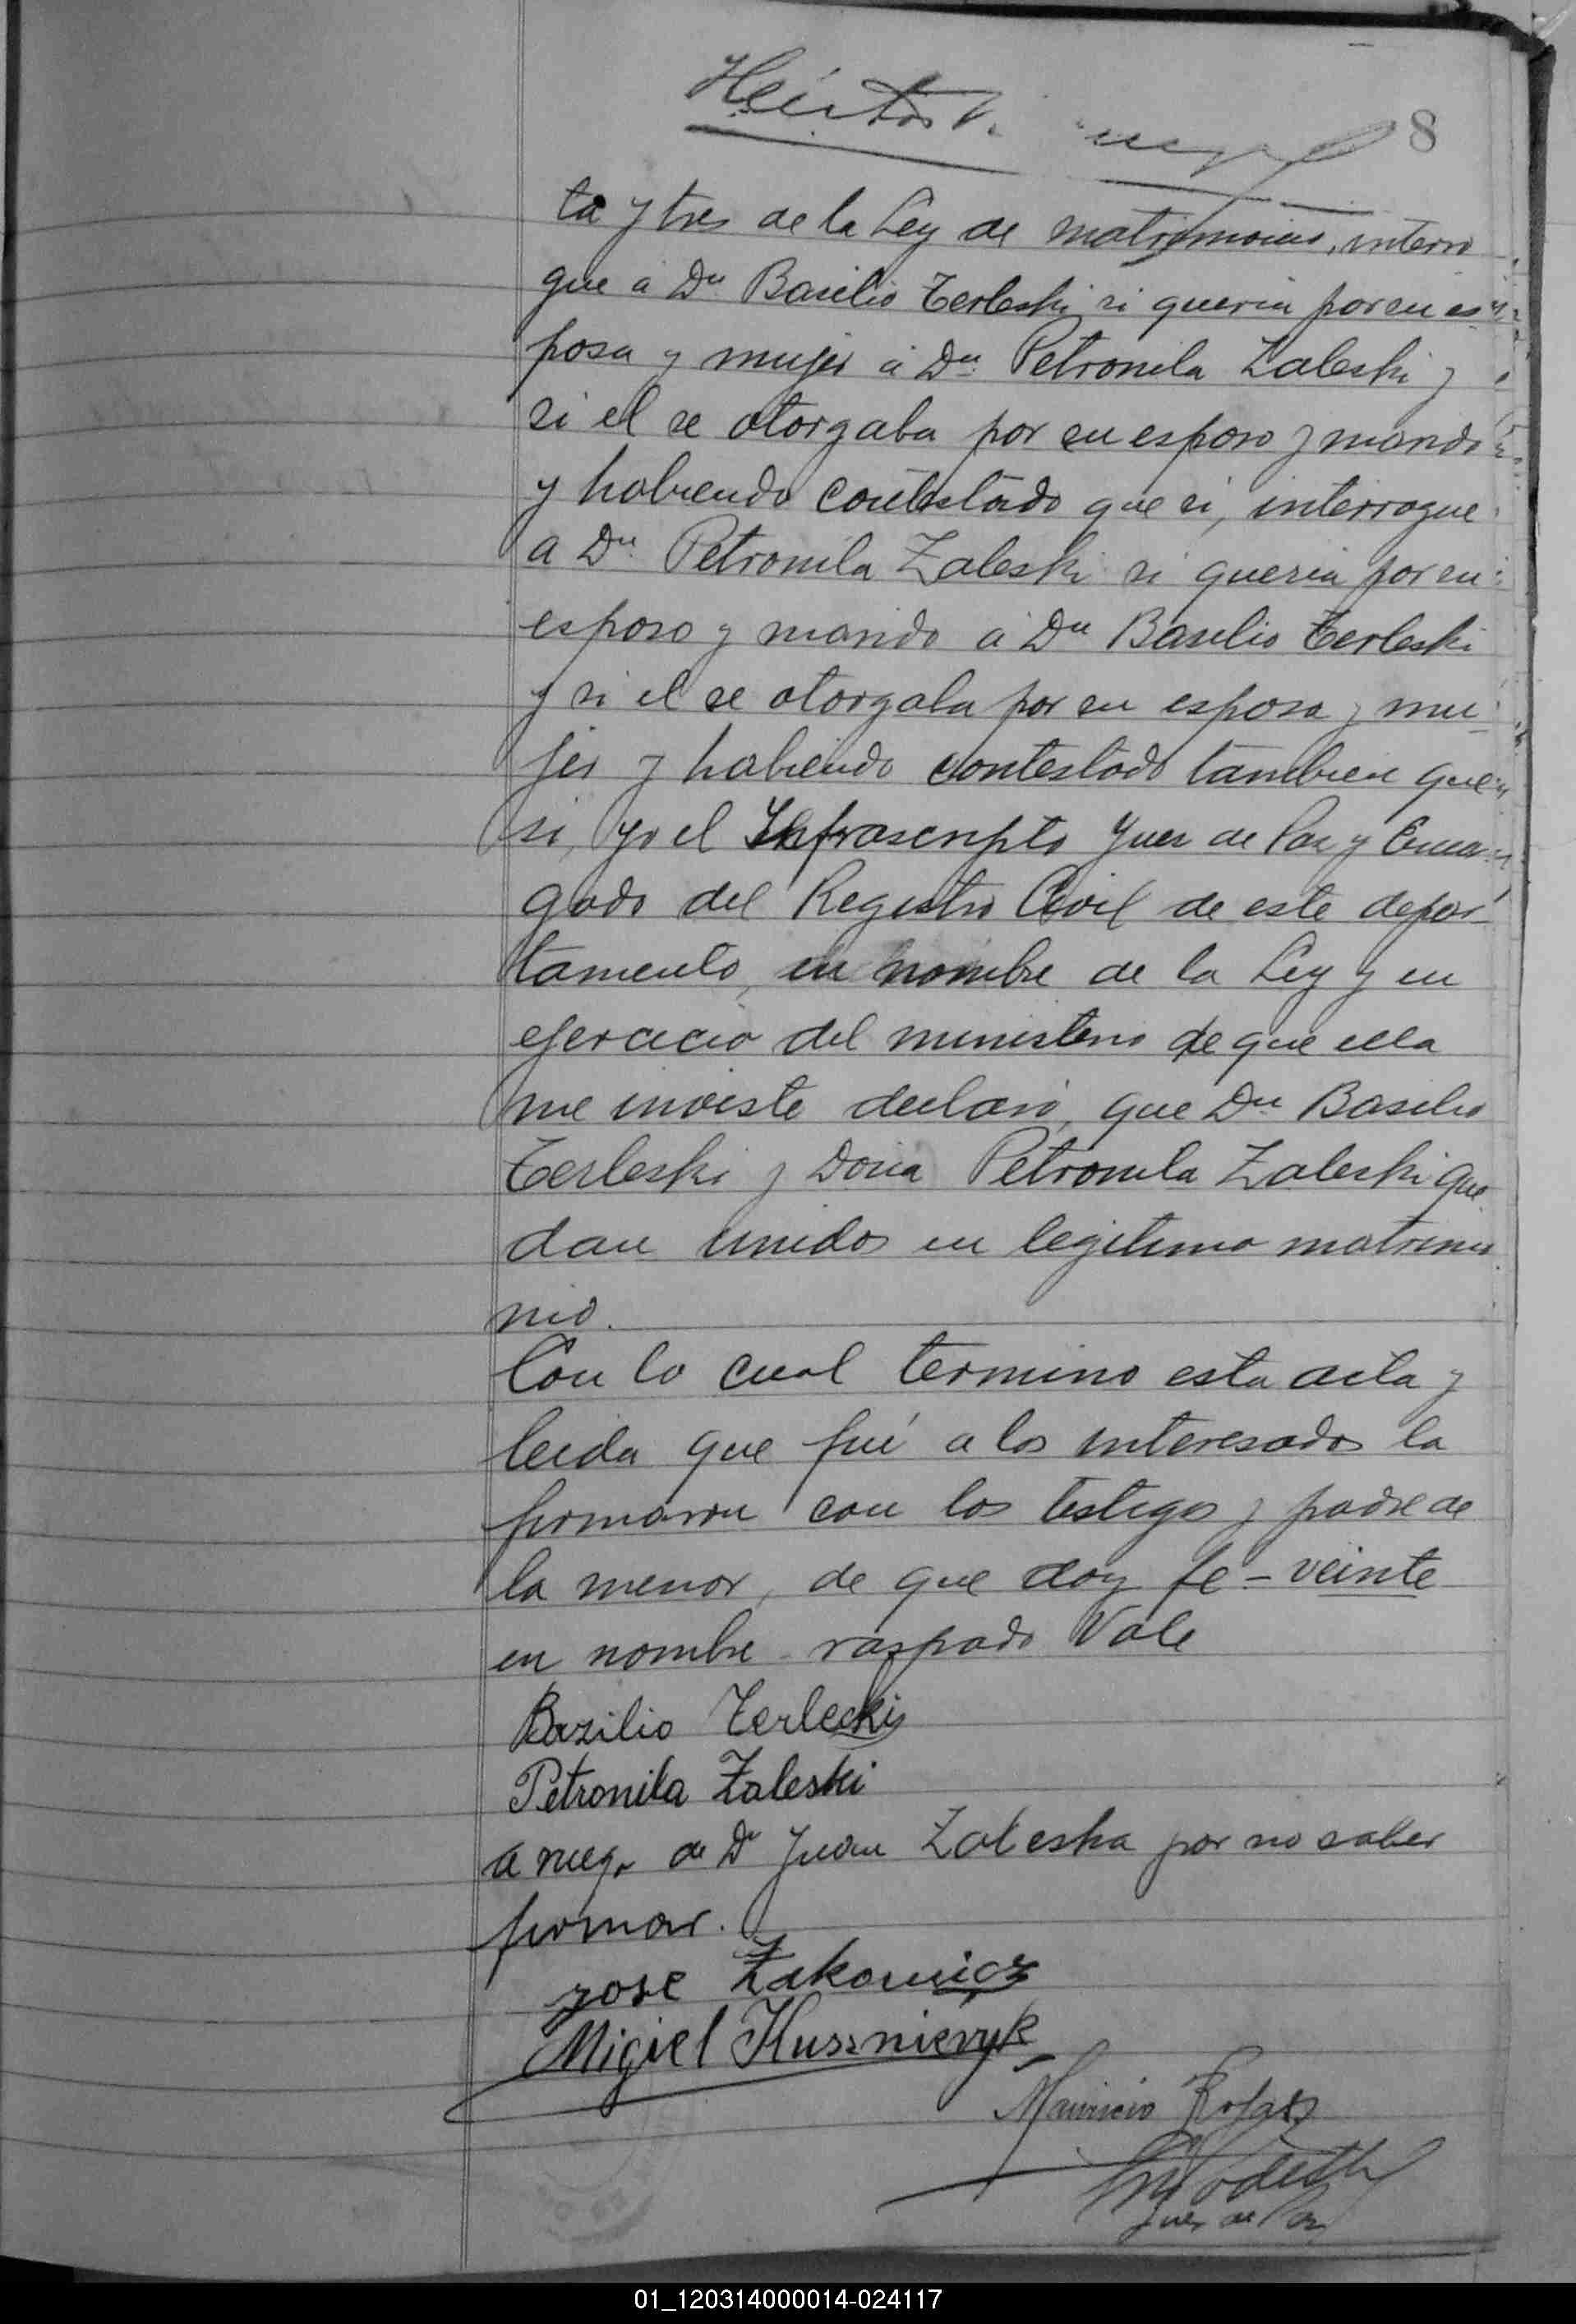 8
ta y tres de la Ley de matrimonio, interro
gue a Dn Basilio Terleski si queria por su es
posa y mujer a Dña Petronila Zaleski y
si el se otorgaba por su esposo y marido
y habiendo contestado que si, interrogue
a Dña Petronila Zaleski si queria por su
esposo y marido a Dn Basilio Terleski
y si el se otorgaba por su esposa y mu-
jer y habiendo contestado tambien que
si, yo el Infrascripto Juez de Paz y Encar
gado del Registro Civil de este depar-
tamento, en nombre de la Ley y en
ejercicio del ministerio de que ella
me inviste declaro, que Dn Basilio
Terleski y Doña Petronila Zaleski que
dan unidos en legitimo matrimo
nio.
Con lo cual termino esta acta y
leida que fué a los interesados la
firmaron con los testigos y padre de
la menor, de que doy fe - veinte
en nombre - raspado Vale
Bazilio Terlecki
Petronila Zaleski
a ruego de Dn Juan Zaleska por no saber
firmar.
Jose Zakowicz
Migiel
Mauricio Rojas
Juez de Paz
01_120314000014-024117